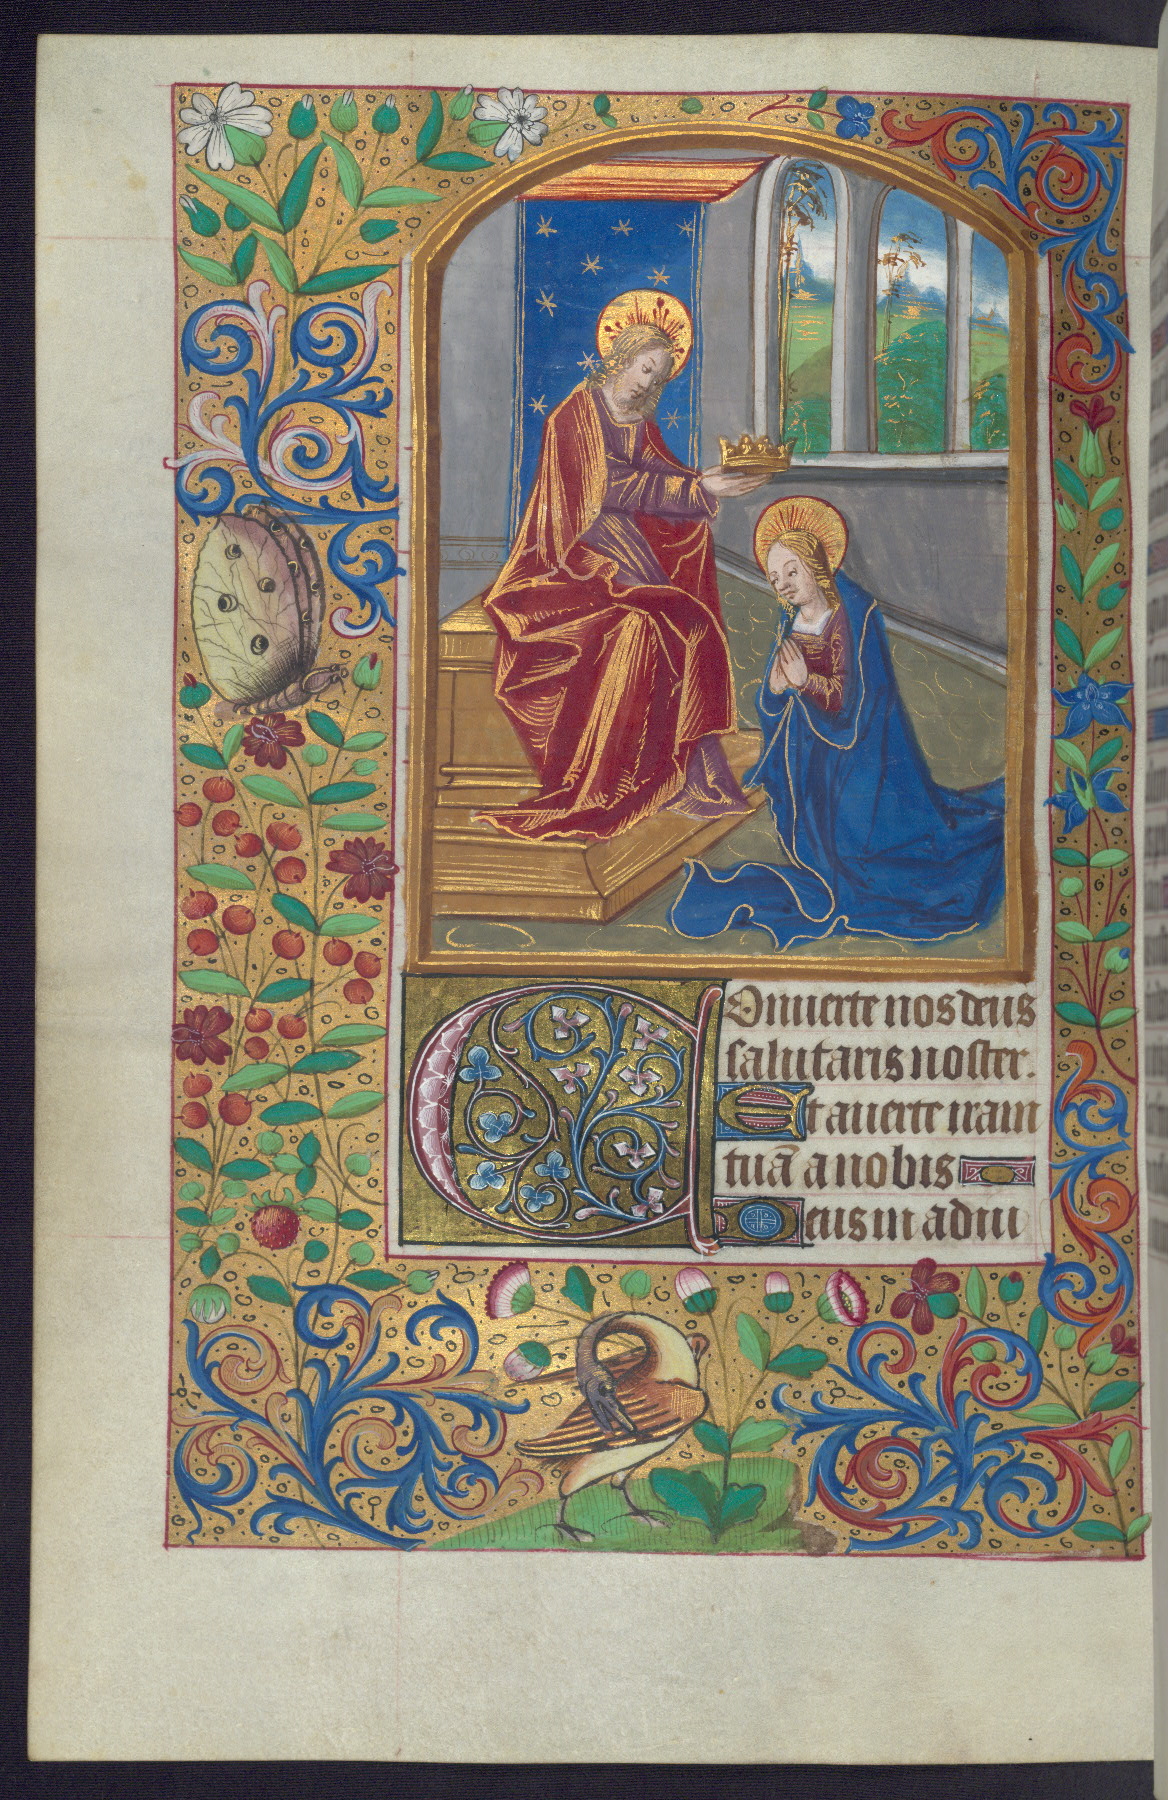 Conuerte nos deus
salutaris noster.
Et auerte iram
tuā a nobis
Deus in adiu